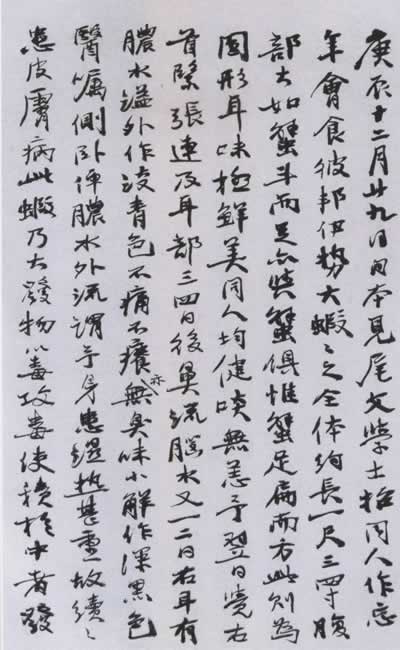 庚辰十二月廿九日日本見尾文學士招同人作忘
年會食彼邦伊勢大蝦々之全体約長一尺三四寸腹
部大如蟹斗而足亦與蟹俱惟蟹足扁而方此則為
圓形耳味極鮮美同人均健啖無恙予翌日覺右
首緊張連及耳部三四日後鼻流腦水又一二日右耳有
膿水溢外作淡青色不痛不癢亦無臭味小解作深黑色
醫囑側臥俾膿水外流謂予身患濕熱甚重故續々
患皮膚病此蝦乃大發物以毒攻毒使積於中者發